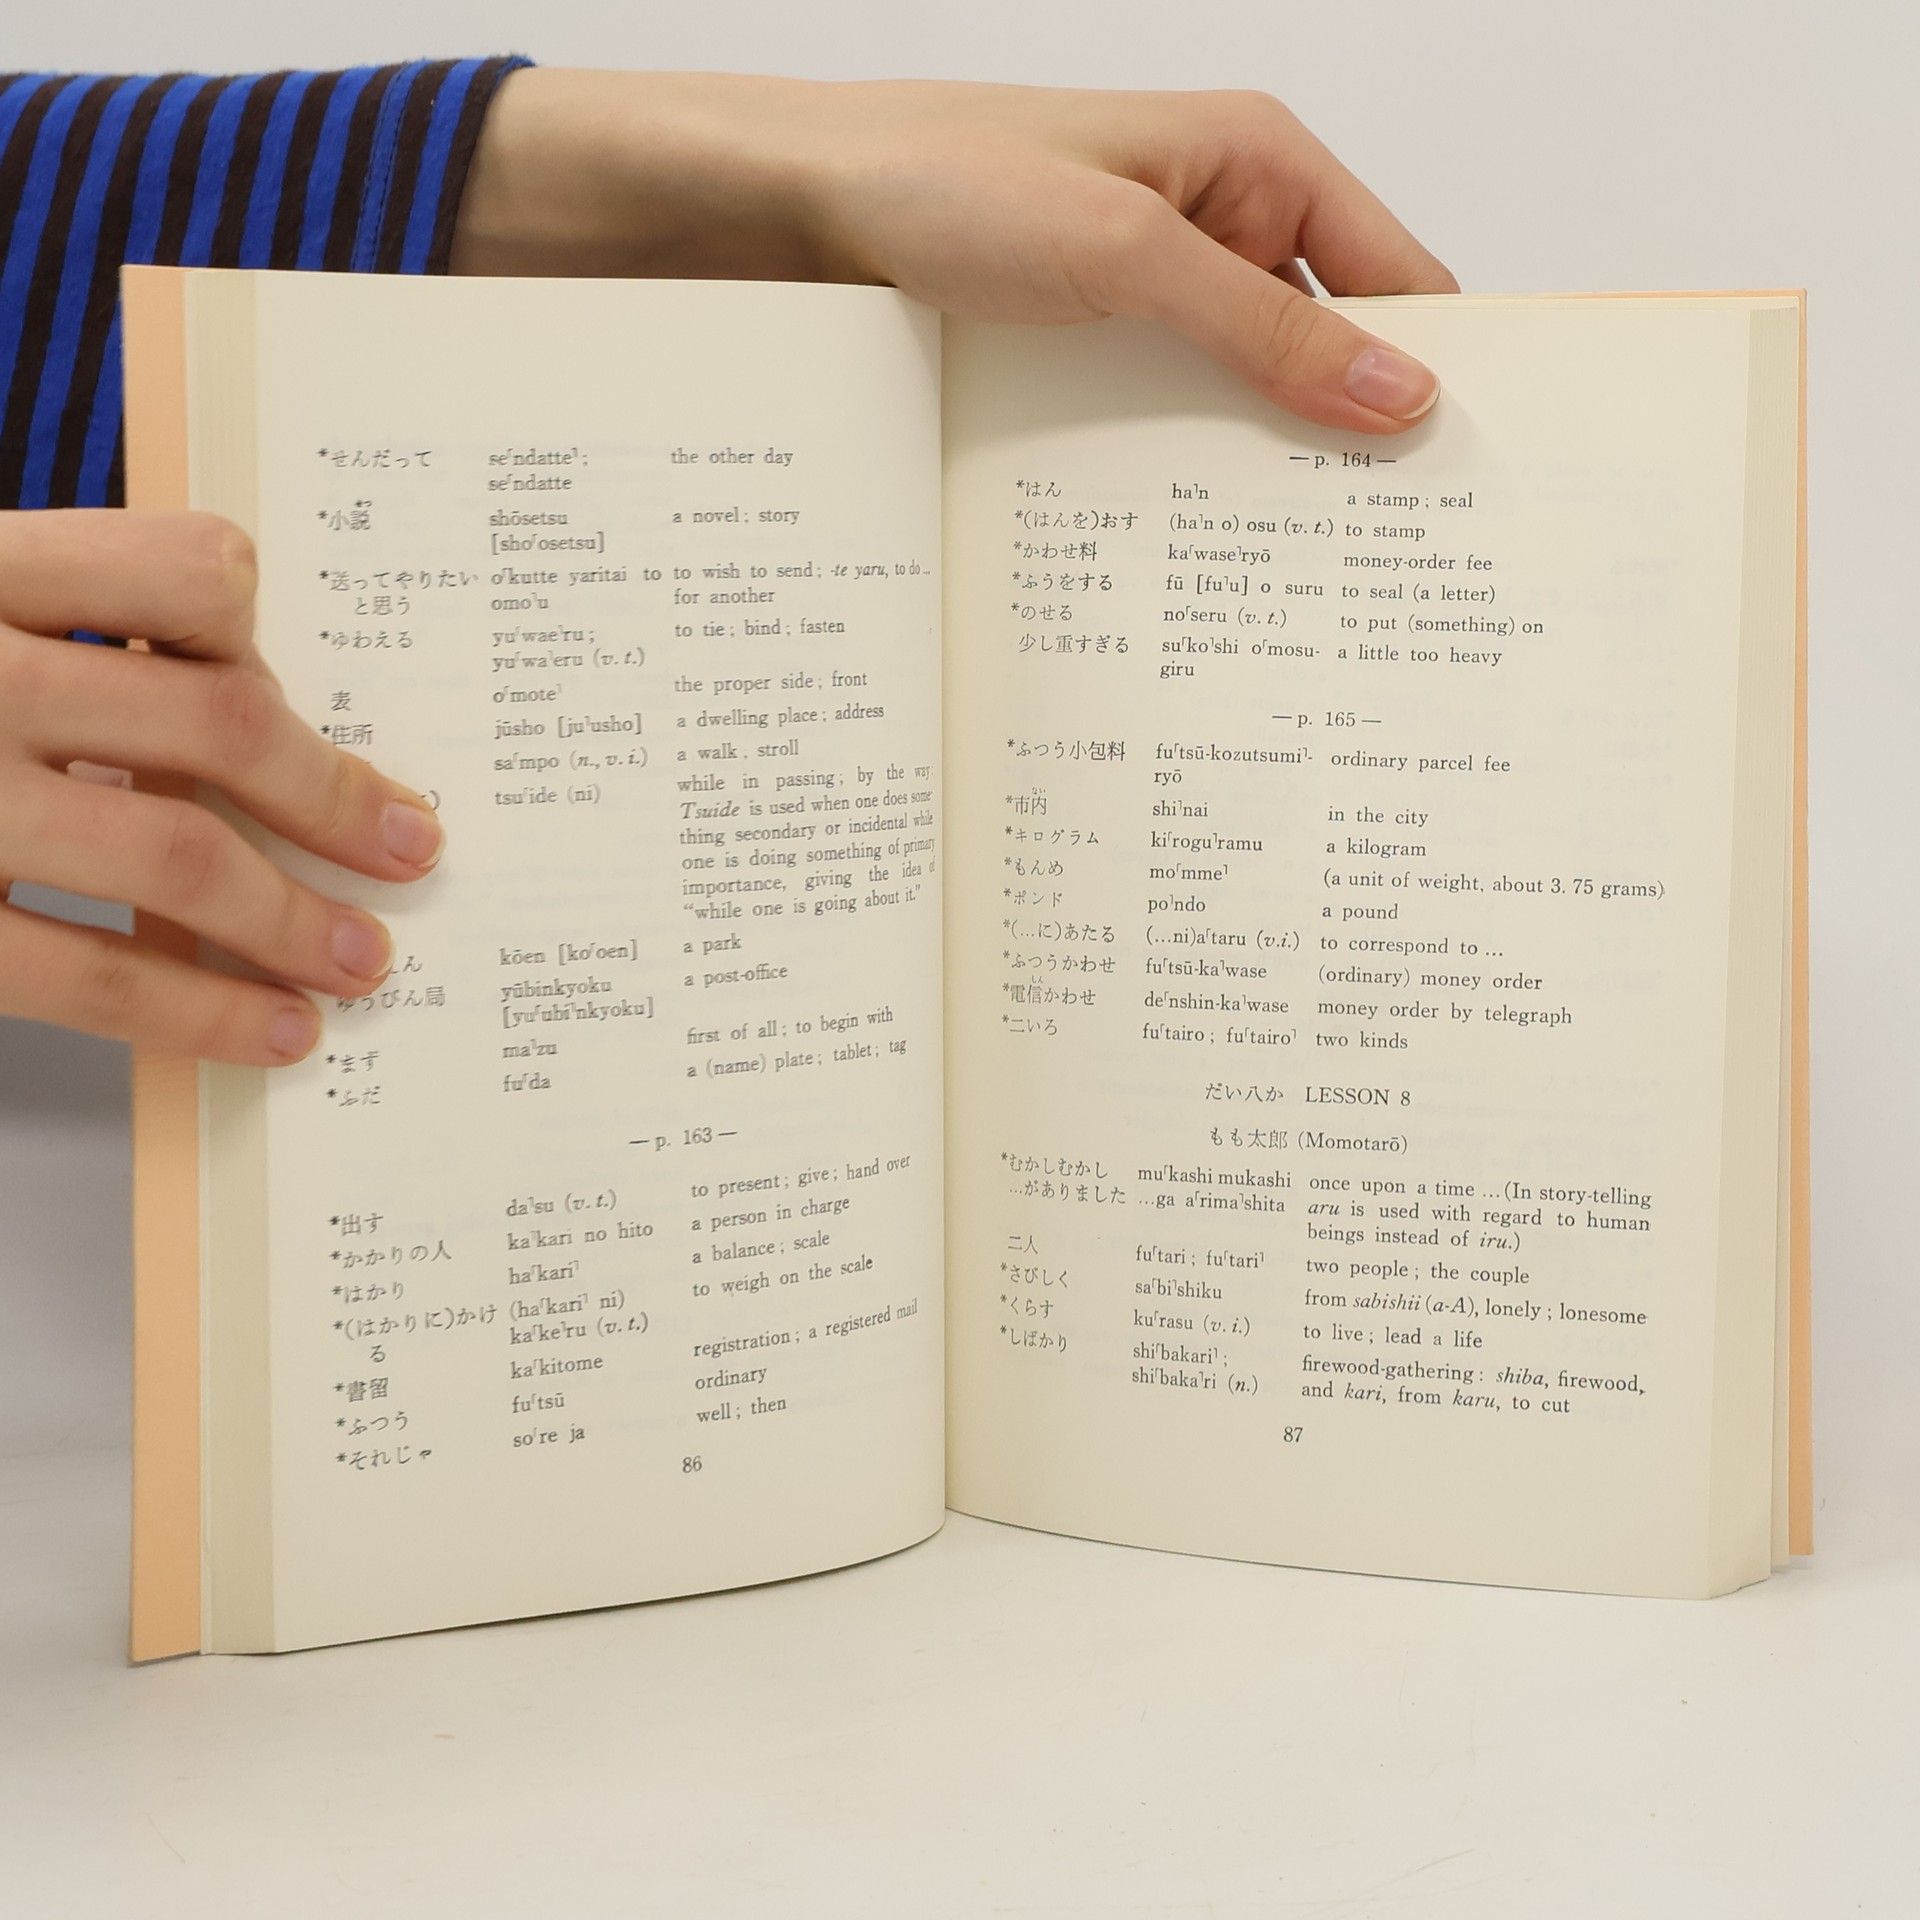 *せんだって se⌈ndatte⌉; the other day
se⌈ndatte
*小説 shōsetsu a novel; story
[sho⌈osetsu]
*送ってやりたい o⌈kutte yaritai to to wish to send; -te yaru, to do ...
と思う omo⌉u for another
*ゆわえる yu⌈wae⌉ru; to tie; bind; fasten
yu⌈wa⌉eru (v. t.)
表 o⌈mote⌉ the proper side; front
*住所 jūsho [ju⌉usho] a dwelling place; address
sa⌈mpo (n., v. i.) a walk, stroll
tsu⌈ide (ni) while in passing; by the way.
Tsuide is used when one does some-
thing secondary or incidental while
one is doing something of primary
importance, giving the idea of
“while one is going about it.”
えん kōen [ko⌈oen] a park
ゆうびん局 yūbinkyoku a post-office
[yu⌈ubi⌉nkyoku]
*まず ma⌉zu first of all; to begin with
*ふだ fu⌈da a (name) plate; tablet; tag
— p. 163 —
*出す da⌉su (v. t.) to present; give; hand over
*かかりの人 ka⌉kari no hito a person in charge
*はかり ha⌈kari⌉ a balance; scale
*(はかりに)かけ (ha⌈kari⌉ ni) to weigh on the scale
る ka⌈ke⌉ru (v. t.)
*書留 ka⌈kitome registration; a registered mail
*ふつう fu⌈tsū ordinary
*それじゃ so⌈re ja well; then
86
— p. 164 —
*はん ha⌉n a stamp; seal
*(はんを)おす (ha⌉n o) osu (v. t.) to stamp
*かわせ料 ka⌈wase⌉ryō money-order fee
*ふうをする fū [fu⌉u] o suru to seal (a letter)
*のせる no⌈seru (v. t.) to put (something) on
少し重すぎる su⌈ko⌉shi o⌈mosu- a little too heavy
giru
— p. 165 —
*ふつう小包料 fu⌈tsū-kozutsumi⌉- ordinary parcel fee
ryō
*市内 shi⌉nai in the city
*キログラム ki⌈rogu⌉ramu a kilogram
*もんめ mo⌈mme⌉ (a unit of weight, about 3.75 grams)
*ポンド po⌉ndo a pound
*(…に)あたる (…ni)a⌈taru (v.i.) to correspond to ...
*ふつうかわせ fu⌈tsū-ka⌉wase (ordinary) money order
*電信かわせ de⌈nshin-ka⌉wase money order by telegraph
*二いろ fu⌈tairo; fu⌈tairo⌉ two kinds
だい八か LESSON 8
もも太郎 (Momotarō)
*むかしむかし mu⌈kashi mukashi once upon a time ...(In story-telling
…がありました …ga a⌈rima⌉shita aru is used with regard to human
beings instead of iru.)
二人 fu⌈tari; fu⌈tari⌉ two people; the couple
*さびしく sa⌈bi⌉shiku from sabishii (a-A), lonely; lonesome
*くらす ku⌈rasu (v. i.) to live; lead a life
*しばかり shi⌈bakari⌉; firewood-gathering: shiba, firewood,
shi⌈baka⌉ri (n.) and kari, from karu, to cut
87